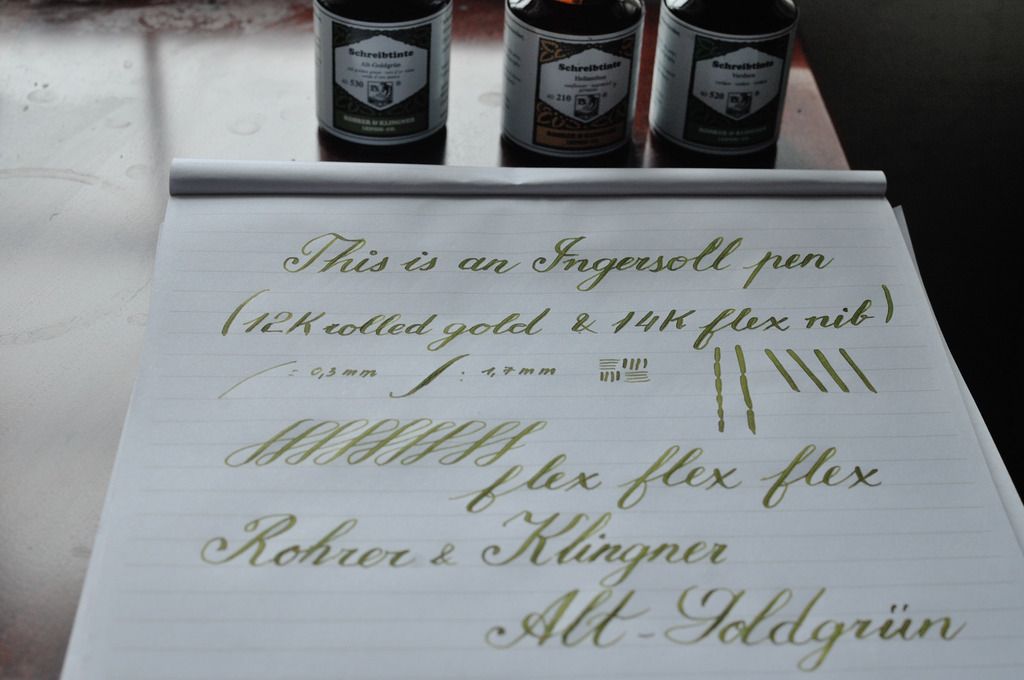 Schreibtinte
Alt-Goldgrün
40 530
ROHRER & KLINGNER
LEIPZIG-CO.
Schreibtinte
Helianthus
40 210
ROHRER & KLINGNER
LEIPZIG-CO.
Schreibtinte
Verdura
40 520
ROHRER & KLINGNER
LEIPZIG-CO.
This is an Ingersoll pen
(12K rolled gold & 14K flex nib)
= 0,3 mm : 1,7 mm
flex flex flex
Rohrer & Klingner
Alt-Goldgrün